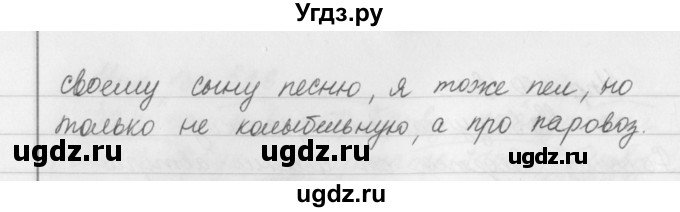 Угдз.ру
своему сыну песню, я тоже пел, но
только не колыбельную, а про паровоз.
ugdz.ru ugdz.ru ugdz.ru
ugdz.ru